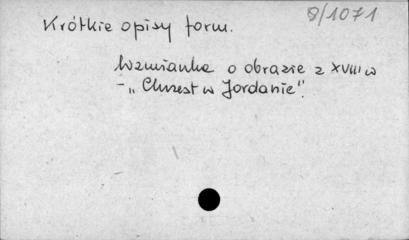 8/1071
Krótkie opisy form.
Wzmianka o obrazie z XVIII w
- „Chrzest w Jordanie".